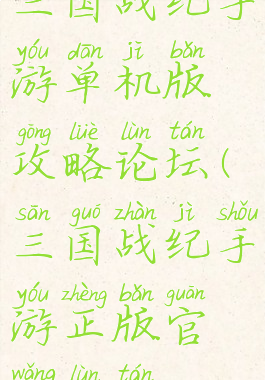 三国战纪手
yóu dān jī bǎn
游单机版
gōng lüè lùn tán
攻略论坛(
sān guó zhàn jì shǒu
三国战纪手
yóu zhèng bǎn guān
游正版官
wǎng lùn tán